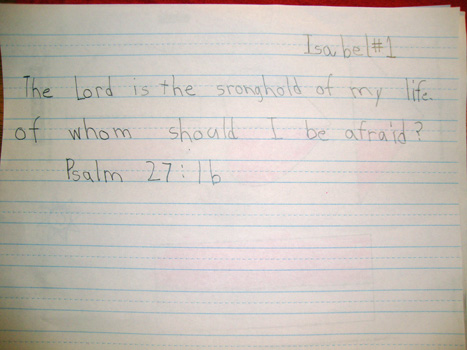 Isabel #1
The Lord is the sronghold of my life.
of whom should I be afraid?
Psalm 27:1b